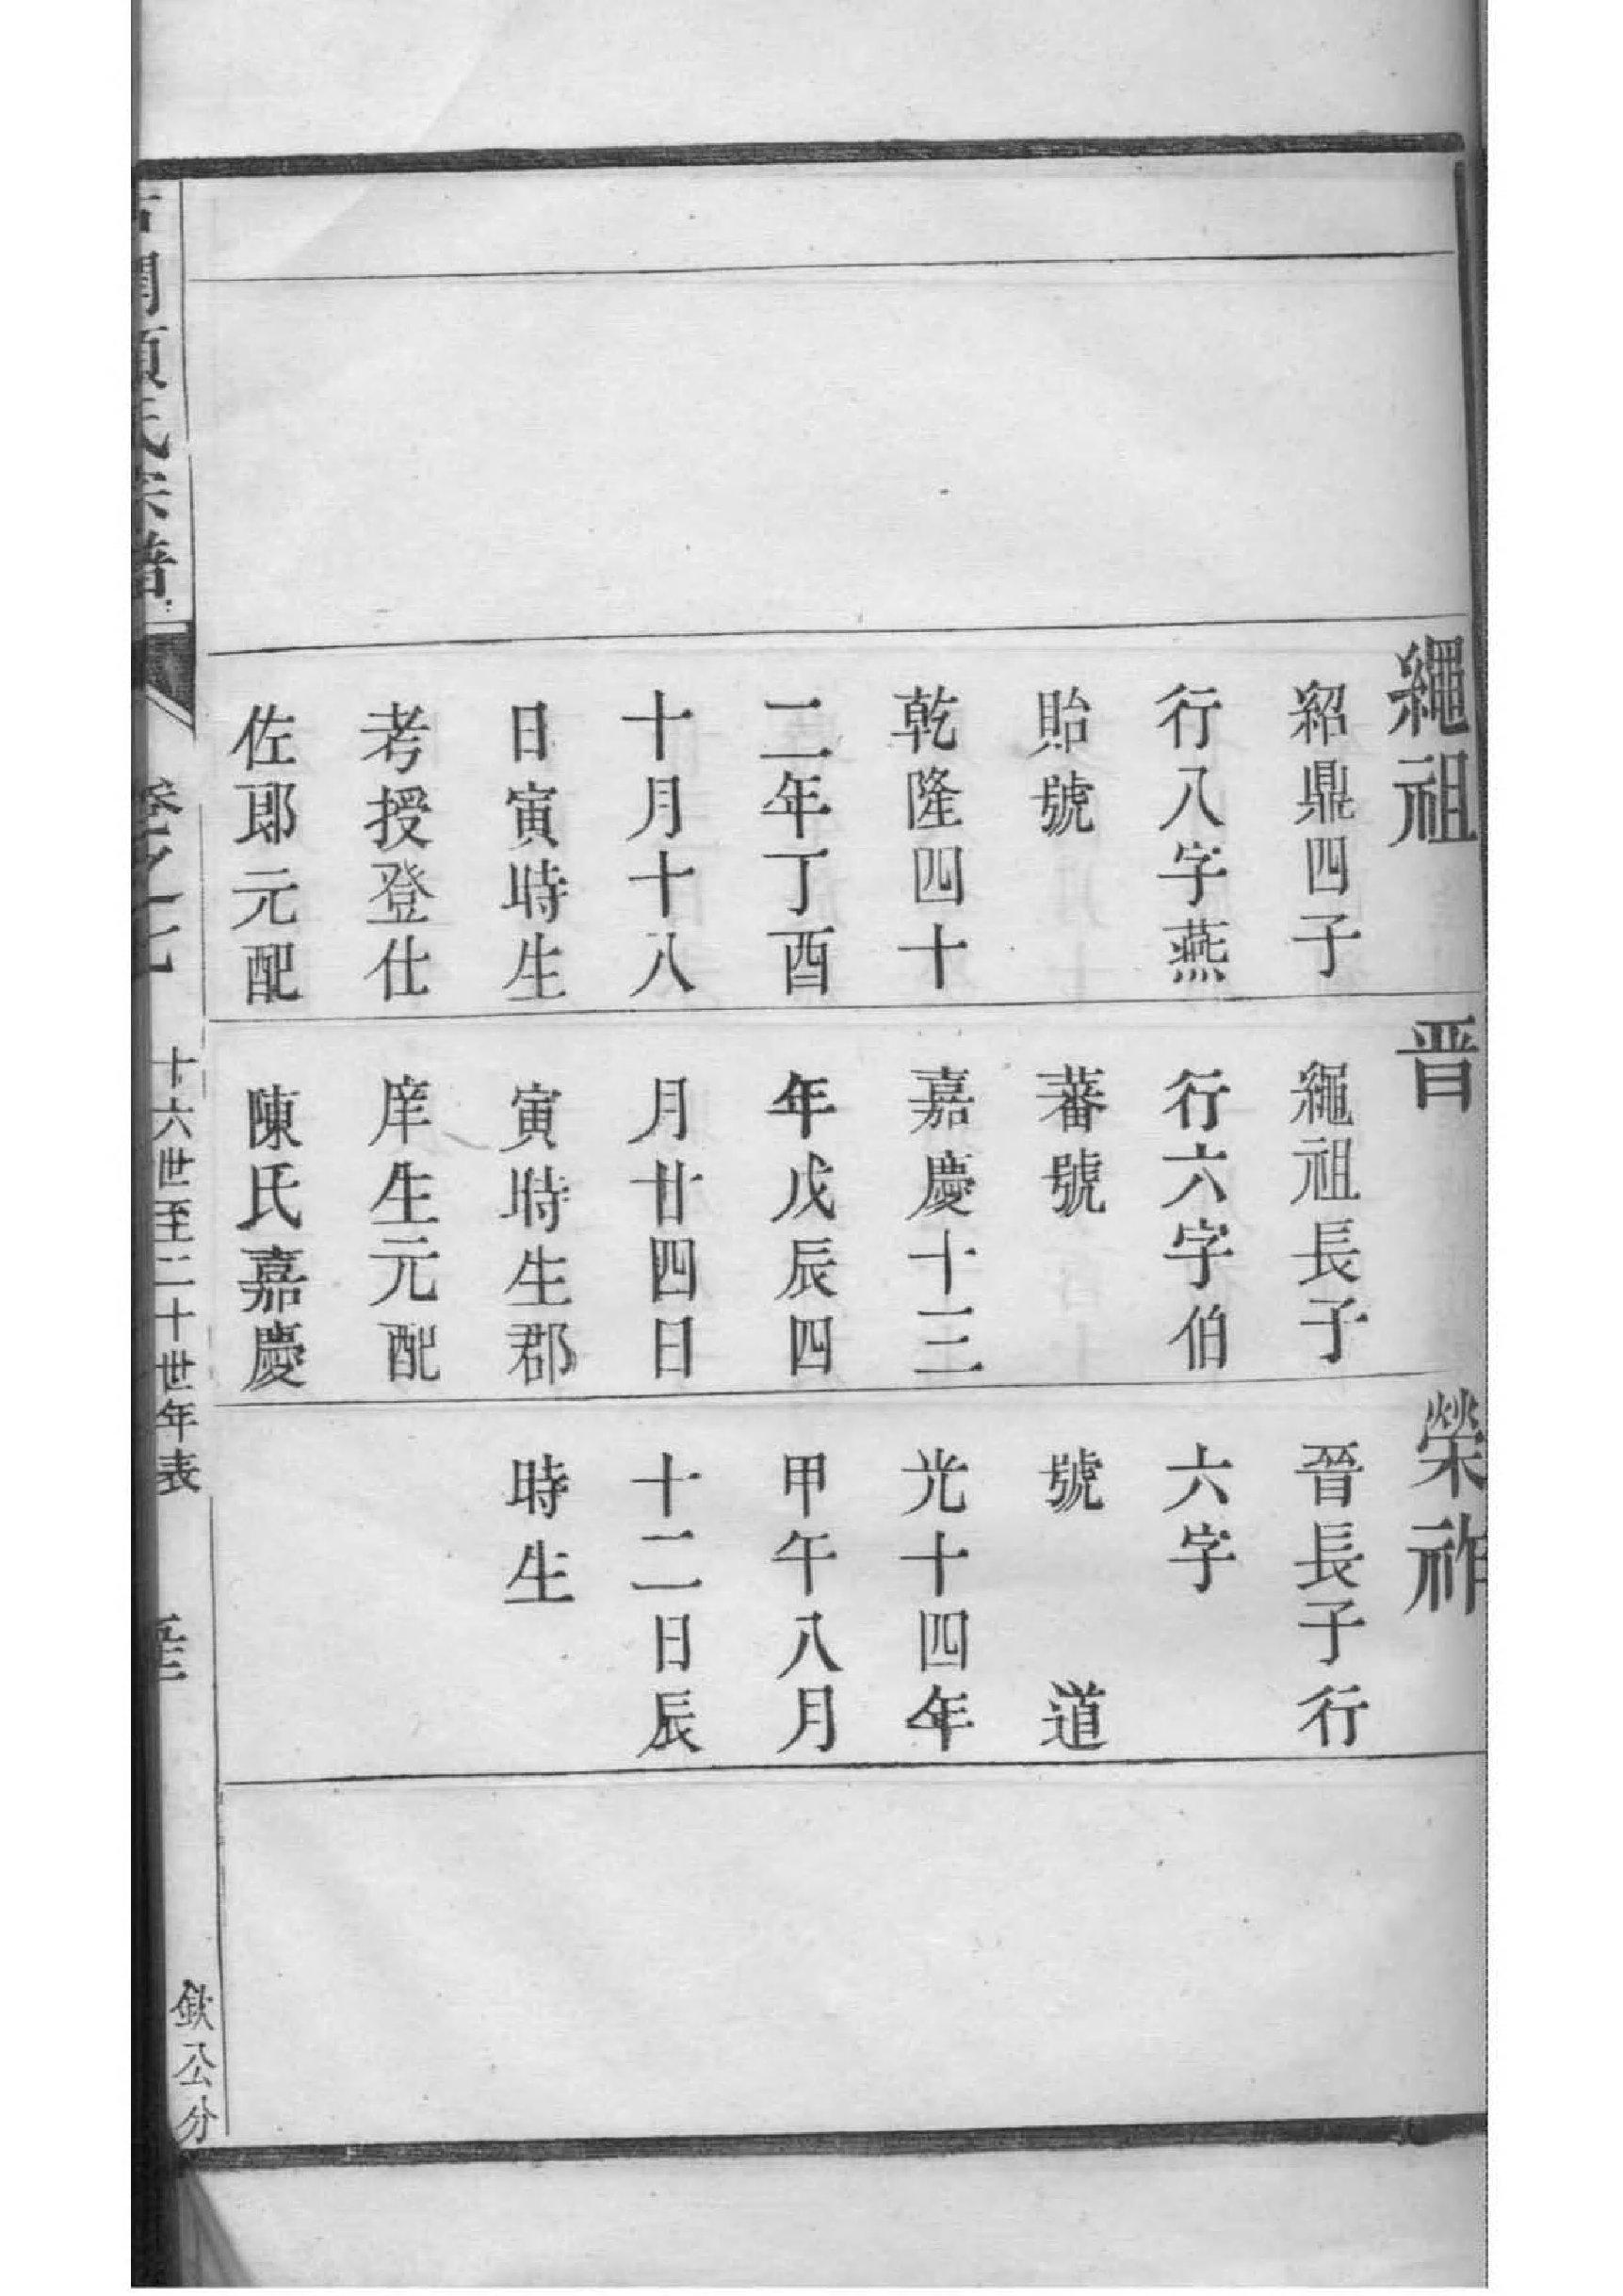 繩祖
紹鼎四子
行八字燕
貽號
乾隆四十
二年丁酉
十月十八
日寅時生
考授登仕
佐郎元配
晋
繩祖長子
行六字伯
蕃號
嘉慶十三
年戊辰四
月廿四日
寅時生郡
庠生元配
陳氏嘉慶
榮祚
晉長子行
六字
號 道
光十四年
甲午八月
十二日辰
時生
氏宗譜
卷之七
十六世至二十世年表
欽公分